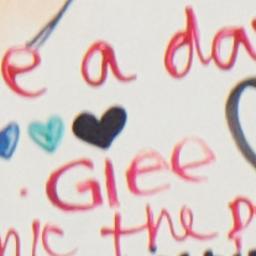 e a da
Glee
nic the p